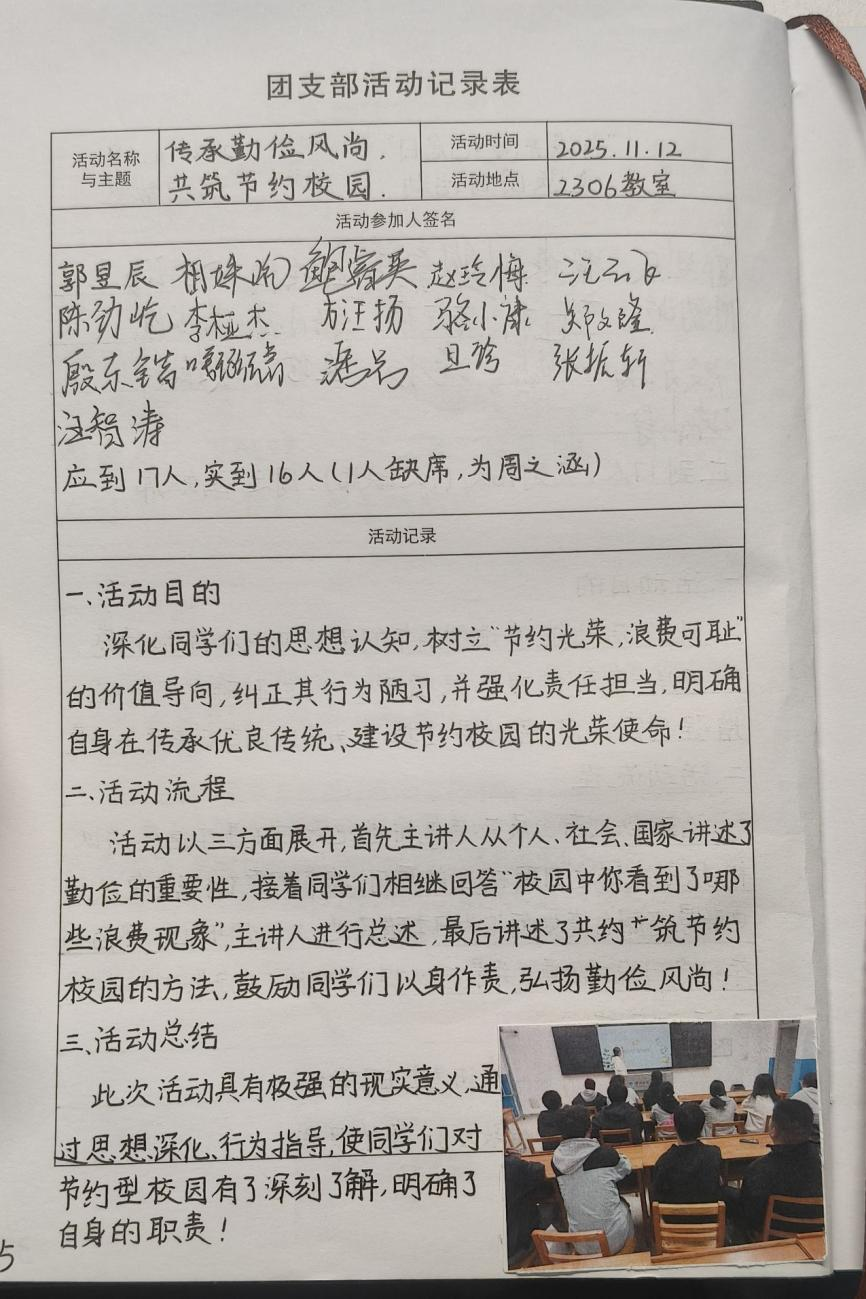 团支部活动记录表
活动名称与主题 传承勤俭风尚. 共筑节约校园. 活动时间 2025.11.12
活动地点 2306教室
活动参加人签名
郭昱辰 赵玲梅 汪云飞
陈劲屹 李桠杰 方汪扬 骆小康 郑文隆
殷东 旦玲 张振轩
汪智涛
应到17人,实到16人(1人缺席,为周之涵)
活动记录
一、活动目的
深化同学们的思想认知,树立“节约光荣,浪费可耻”
的价值导向,纠正其行为陋习,并强化责任担当,明确
自身在传承优良传统、建设节约校园的光荣使命!
二、活动流程
活动以三方面展开,首先主讲人从个人、社会、国家讲述了
勤俭的重要性,接着同学们相继回答“校园中你看到了哪
些浪费现象”,主讲人进行总述,最后讲述了共约筑节约
校园的方法,鼓励同学们以身作责,弘扬勤俭风尚!
三、活动总结
此次活动具有极强的现实意义,通
过思想深化、行为指导,使同学们对
节约型校园有了深刻了解,明确了
自身的职责!
5